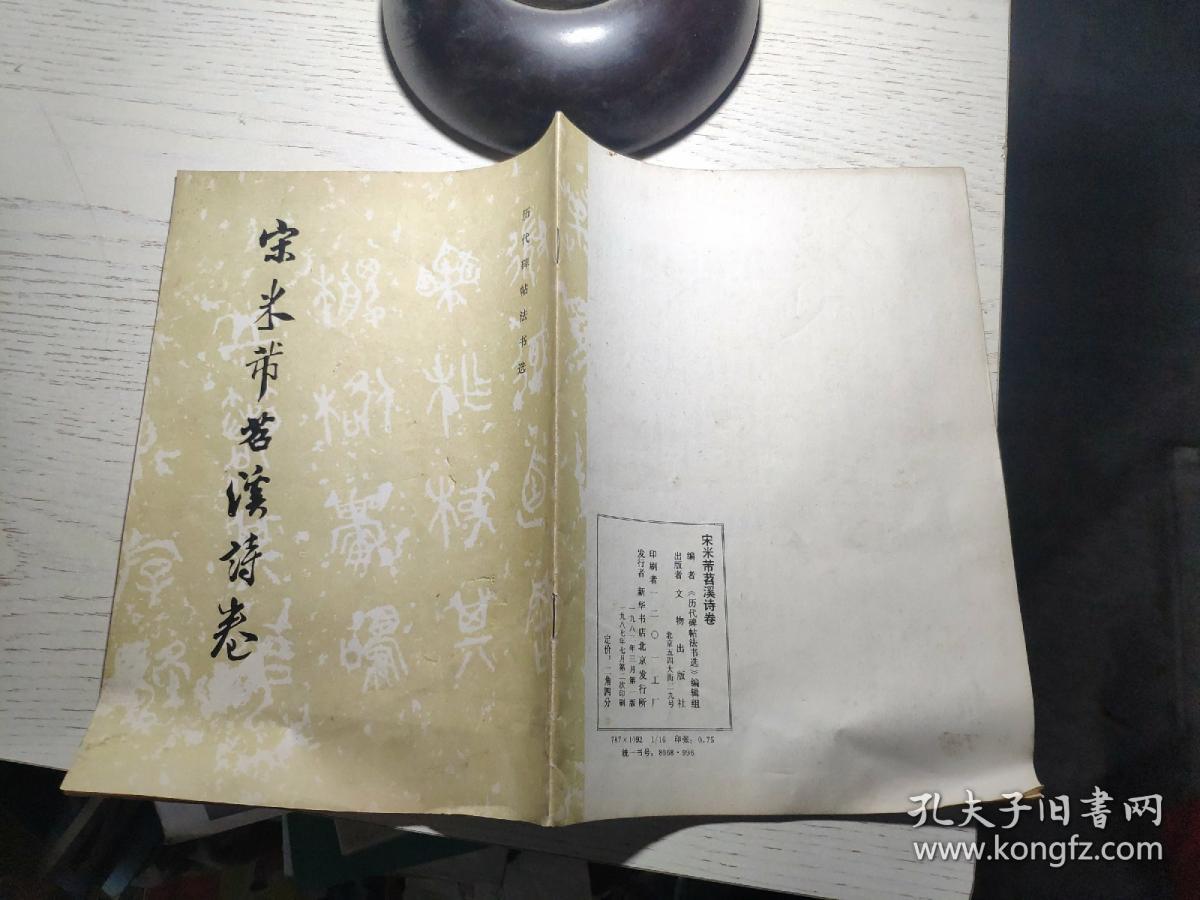 历代碑帖法书选
宋米芾苕溪诗卷
宋米芾苕溪诗卷
编者《历代碑帖法书选》编辑组
出版者 文物出版社
北京五四大街二九号
印刷者 一二〇一工厂
发行者 新华书店北京发行所
一九八二年三月第一版
一九八七年七月第二次印刷
定价：二角四分
787×1092 1/16 印张：0.75
统一书号：8068·996
孔夫子旧书网
www.kongfz.com